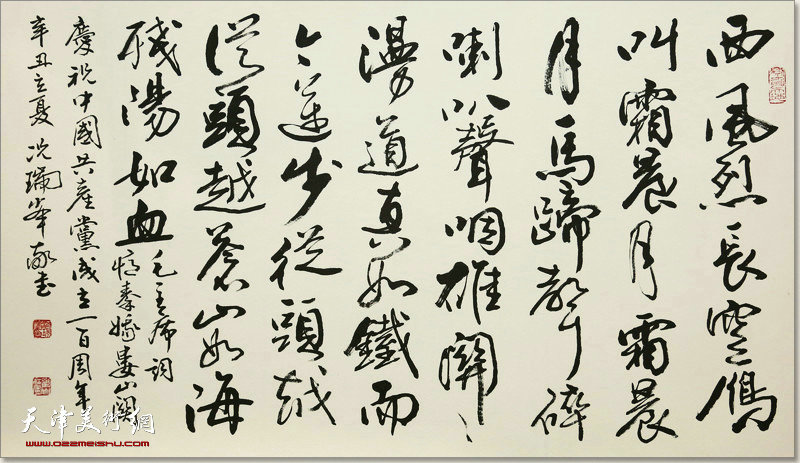 西風烈長空鴈
叫霜晨月霜晨
月馬蹄聲碎
喇叭聲咽雄關、
漫道真如鐵而
今邁步從頭越
從頭越蒼山如海
殘陽如血
毛主席詞
憶秦娥婁山關
慶祝中國共產黨成立一百周年
辛丑立夏 况瑞峯敬書
天津美術網
www.022meishu.com